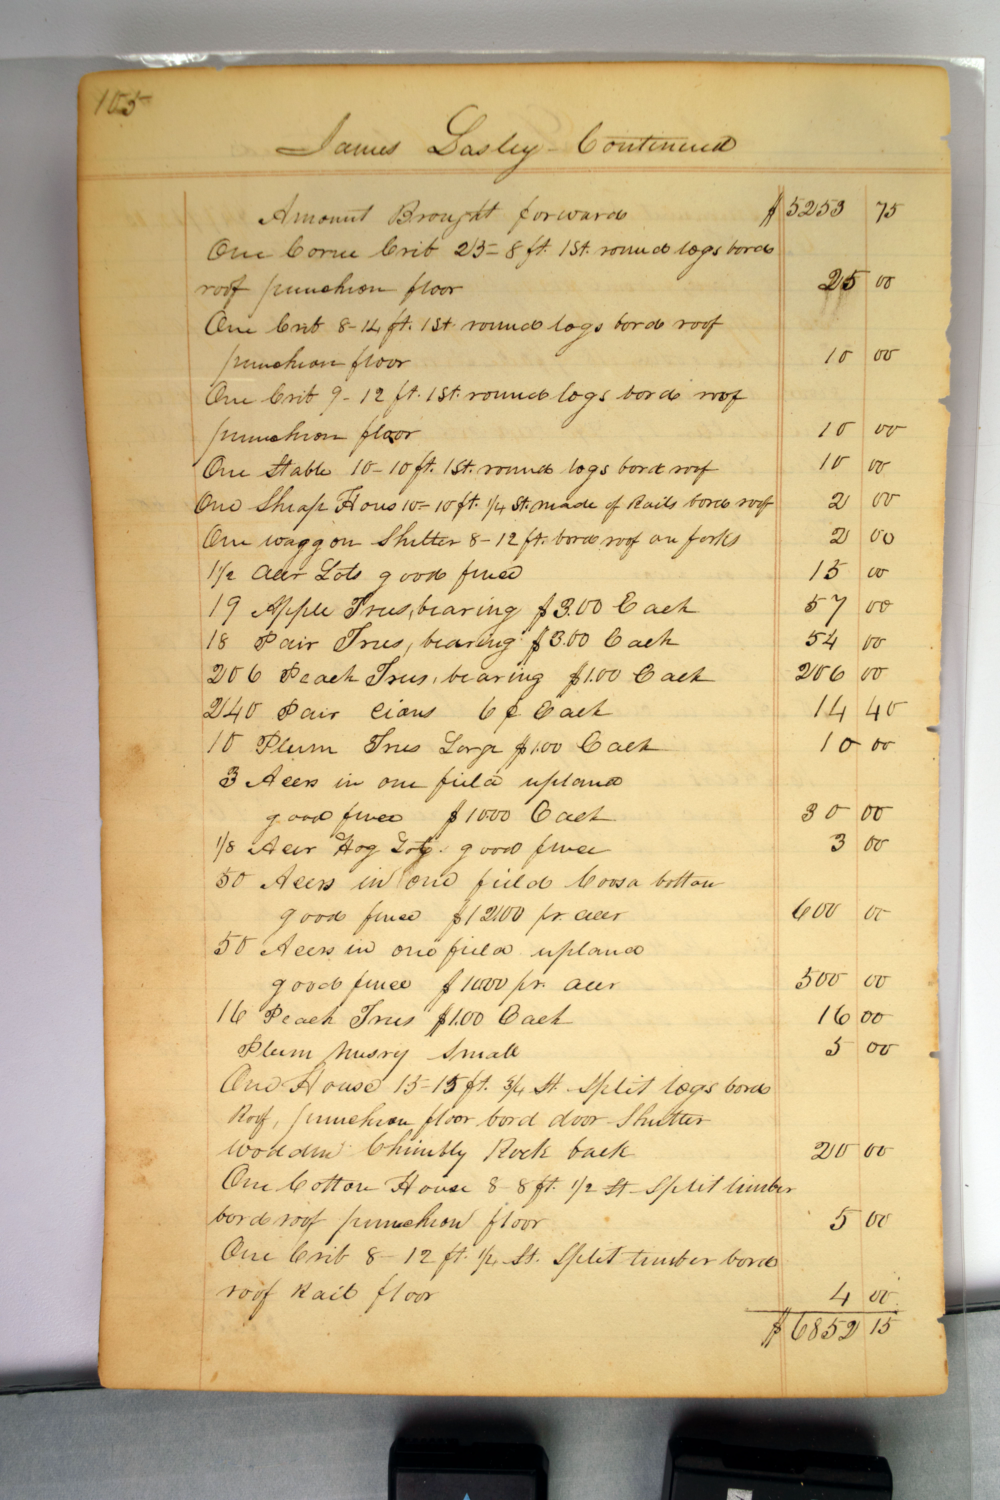 105
James Lasley Continued
Amount Brought forward $5253 75
One Corne Crib 25-8 ft. 1 St. round logs bord
roof puncheon floor 25 00
One Crib 8-14 ft. 1 St. round logs bord roof
puncheon floor 10 00
One Crib 9-12 ft. 1 St. round logs bord roof
puncheon floor 10 00
One Stable 10-10 ft. 1 St. round logs bord roof 10 00
One Sheap Hous 10-10 ft. 1/4 St. made of Rails bord roof 2 00
One waggon Shelter 8-12 ft. bord roof on forks 2 00
1 1/2 Acer Lots good fince 15 00
19 Apple Trees, bearing $3.00 Each 57 00
18 Pair Trees, bearing $3.00 Each 54 00
206 Peach Trees, bearing $1.00 Each 206 00
240 Pair cions 6 ¢ Each 14 40
10 Plum Trees Large $1.00 Each 10 00
3 Acers in one field upland
good fince $10.00 Each 30 00
1/8 Acer Hog Lot good fince 3 00
50 Acers in one field Coosa bottom
good fince $12.00 pr. acer 600 00
50 Acers in one field upland
good fince $10.00 pr. acer 500 00
16 Peach Trees $1.00 Each 16 00
Plum nusry Small 5 00
One House 15-15 ft. 3/4 St. Split logs bord
Roof, puncheon floor bord door Shutter
wooden Chimbly Rock back 20 00
One Cotton House 8-8 ft. 1/2 St Split timber
bord roof puncheon floor 5 00
One Crib 8-12 ft. 1/2 St. Split timber bord
roof Rail floor 4 00
$6852 15